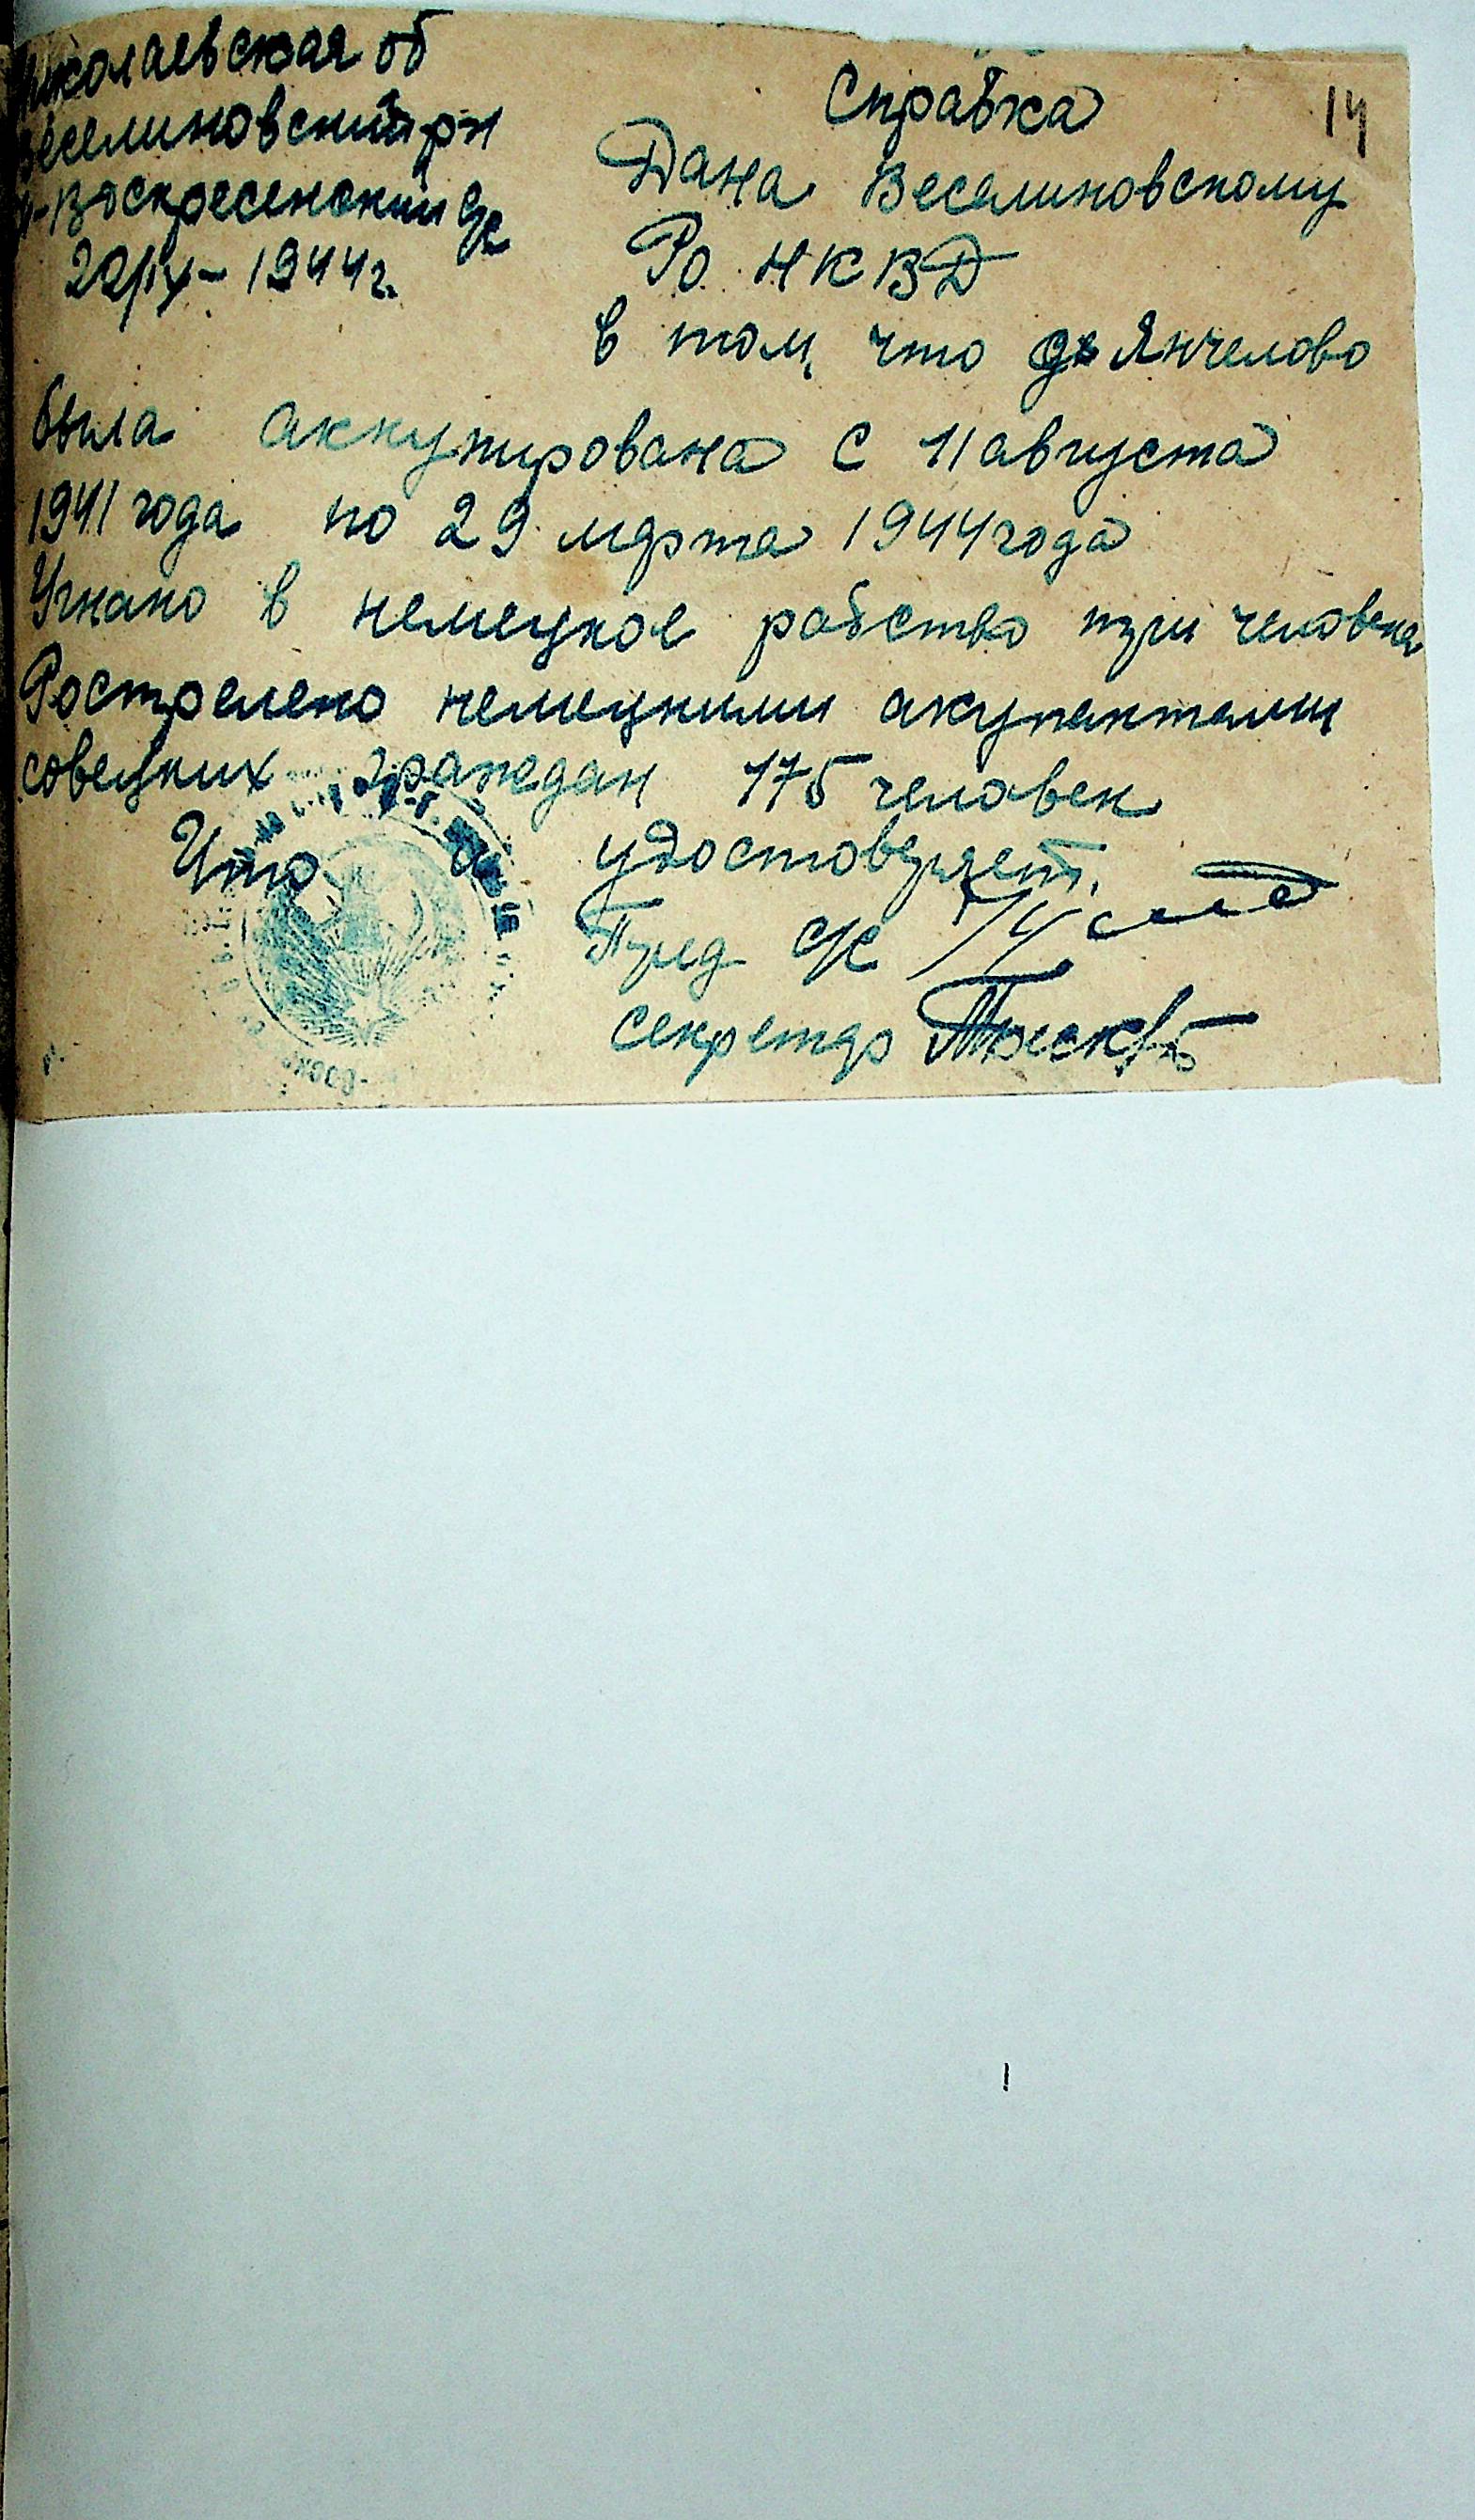 Николаевская об
Веселиновский рн
Воскресенский с/с
20/IX - 1944 г.
14
Справка
Дана Веселиновскому
Ро НКВД
в том, что Янчелово
была аккупирована с 11 августа
1941 года по 29 марта 1944 года
Угнано в немецкое рабство три человека
Рострелено немецкими акупантами
совецких граждан 175 человек
Что и удостоверяет.
Пред с/с
секретар